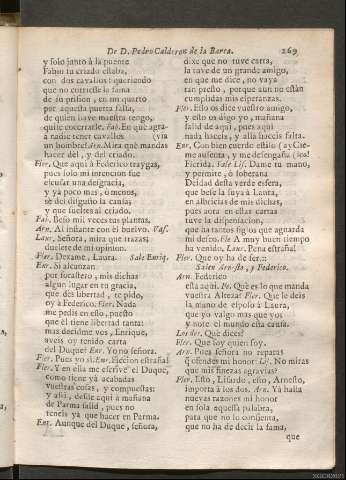 De D. Pedro Calderon de la Barca. 269
y solo junto à la puente
Fabio tu criado estaba,
con dos cavallos; queriendo
que no corriesse la fama
de su prision, en mi quarto
por aquesta puerta falsa,
de quien llave maestra tengo,
quise encerrarle. Fab. En que agra-
à nadie tener cavallos (via
un hombre? Arn. Mira què mandas
hacer dèl, y del criado.
Fler. Que aqui à Federico traygas,
pues solo mi intencion fue
escusar una desgracia,
y yà poco mas, ò menos,
sè del disgusto la causa;
y que sueltes al criado.
Fab. Beso mil veces tus plantas.
Arn. Al instante con èl buelvo. Vase.
Laur. Señora, mira que trazas;
duelete de mi opinion.
Fler. Dexame, Laura. Sale Enriq.
Enr. Si alcanzan
por forastero, mis dichas
algun lugar en tu gracia,
que des libertad, te pido,
oy à Federico. Fler. Nada
me pedis en esso, puesto
que èl tiene libertad tanta:
mas decidme vos, Enrique,
aveis oy tenido carta
del Duque? Enr. Yo no señora.
Fler. Pues yo sì. Enr. Ficcion estraña!
Fler. Y en ella me escrive el Duque,
como tiene yà acabadas
vuestras cosas, y compuestas:
y assi, desde aqui à mañana
de Parma salid, pues no
teneis yà que hacer en Parma.
Enr. Aunque del Duque, señora,
dixe que no tuve carta,
la tuve de un grande amigo,
en que me dice, no vaya
tan presto, porque aun no estàn
cumplidas mis esperanzas.
Fler. Esso os dice vuestro amigo,
y esto os digo yo, mañana
salid de aqui, pues aqui
nada haceis, y allà haceis falta.
Enr. Con bien cuerdo estilo (ay Cie-
me ausenta, y me desengaña. (los!
Flerida. Sale Lis. Dame tu mano,
y permite, ò soberana
Deidad desta verde esfera,
que bese la suya à Laura,
en albricias de mis dichas,
pues aora en estas cartas
tuve la dispensacion,
que hà tantos siglos que aguarda
mi deseo. Fle. A muy buen tiempo
ha venido. Laur. Pena estraña!
Fler. Que oy ha de ser::
Salen Arnesto, y Federico.
Arn. Federico
està aqui. Fe. Què es lo que manda
vuestra Alteza? Fler. Que le deis
la mano de esposo à Laura,
que yo valgo mas que yo:
y note el mundo esta causa.
Los dos. Què dices?
Fler. Que soy quien soy.
Arn. Pues señora no reparas
q̃ ofendes mi honor? Lis. No miras
que mis finezas agravias?
Fler. Esto, Lisardo, esto, Arnesto,
importa à los dos. Arn. Yà halla
nuevas razones mi honor
en sola aquessa palabra,
para que no lo consienta,
que no ha de decir la fama,
que